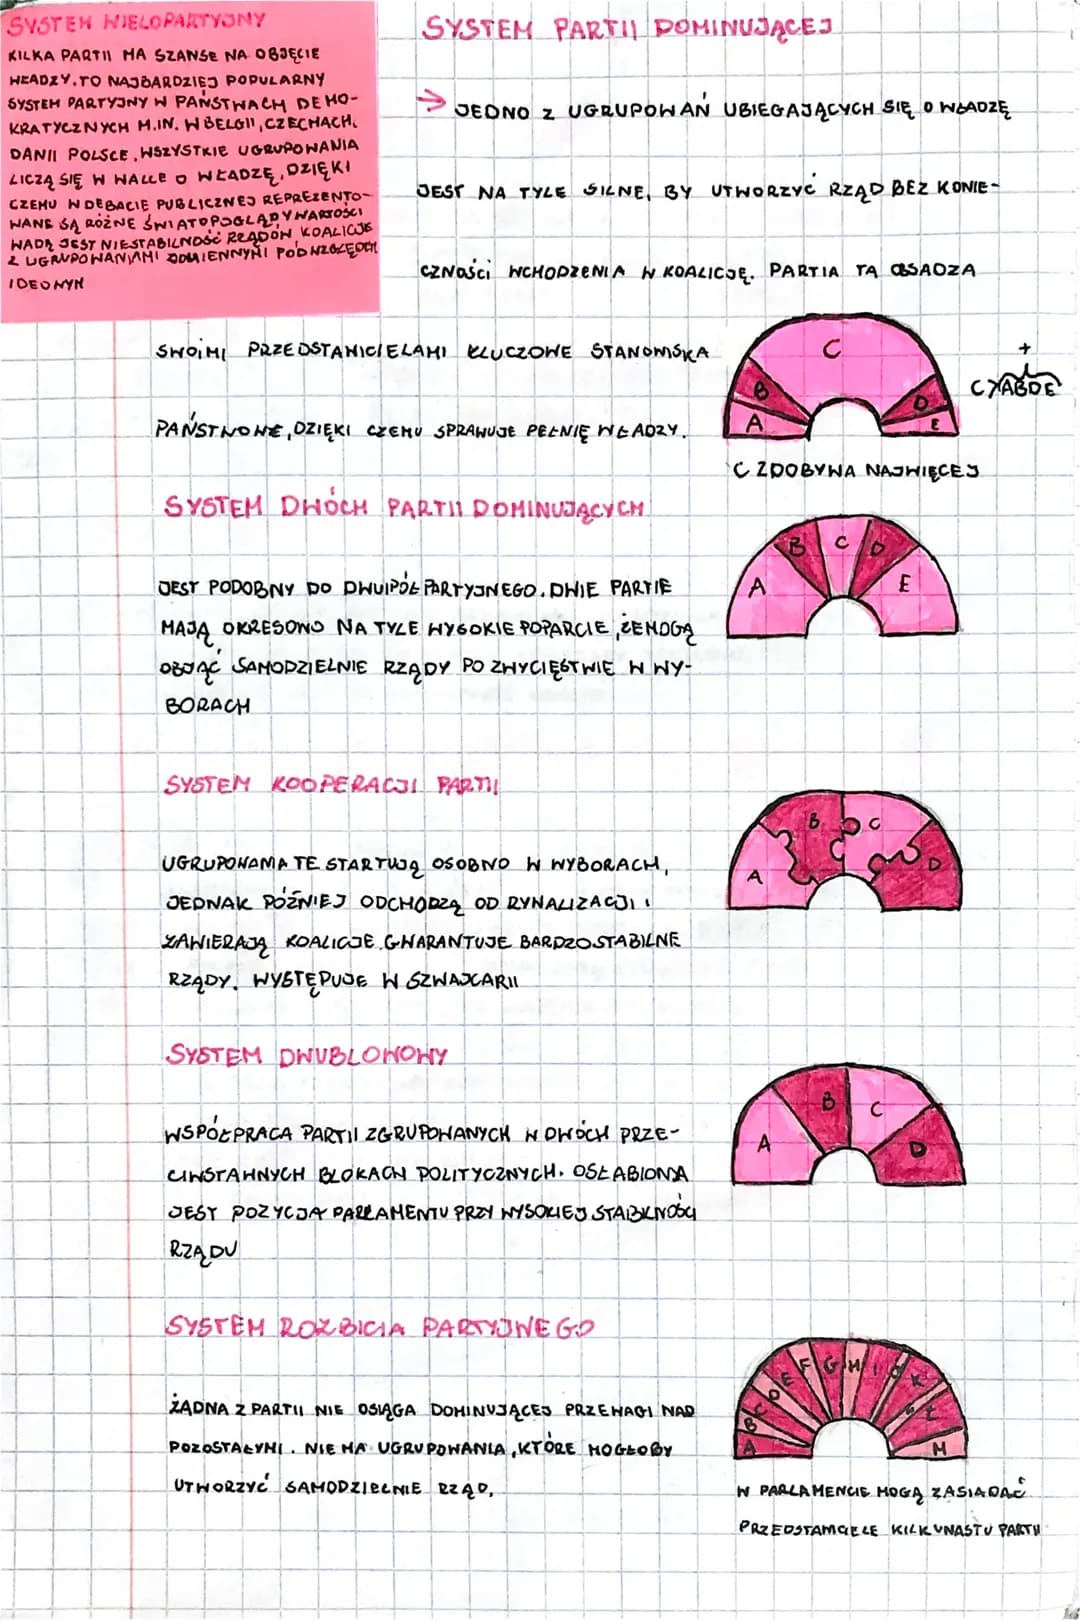 SYSTEM WIELOPARTYJNY
KILKA PARTII MA SZANSE NA OBJĘCIE
WŁADZY. TO NAJBARDZIEJ POPULARNY
SYSTEM PARTYJNY W PAŃSTWACH DEMO-
KRATYCZNYCH M.IN. W BELGII, CZECHACH,
DANII POLSCE. WSZYSTKIE UGRUPOWANIA
LICZĄ SIĘ W WALCE O WŁADZĘ, DZIĘKI
CZEMU W DEBACIE PUBLICZNEJ REPREZENTO-
WANE SĄ RÓŻNE ŚWIATOPOGLĄDY WARTOŚCI
WADĄ JEST NIESTABILNOŚĆ RZĄDÓW KOALICJE
Z UGRUPOWANIAMI ODMIENNYMI POD WZGLĘDEM
IDEOWYM
SYSTEM PARTII DOMINUJĄCEJ
→ JEDNO Z UGRUPOWAŃ UBIEGAJĄCYCH SIĘ O WŁADZĘ
JEST NA TYLE SILNE, BY UTWORZYĆ RZĄD BEZ KONIE-
CZNOŚCI WCHODZENIA W KOALICJĘ. PARTIA TA OBSADZA
SWOIMI PRZEDSTAWICIELAMI KLUCZOWE STANOWISKA
PAŃSTWOWE, DZIĘKI CZEMU SPRAWUJE PEŁNIĘ WŁADZY.
A B C D E
+
C>ABDE
C ZDOBYWA NAJWIĘCEJ
SYSTEM DWÓCH PARTII DOMINUJĄCYCH
JEST PODOBNY DO DWUIPÓŁPARTYJNEGO. DWIE PARTIE
MAJĄ OKRESOWO NA TYLE WYSOKIE POPARCIE, ŻE MOGĄ
OBJĄĆ SAMODZIELNIE RZĄDY PO ZWYCIĘSTWIE W WY-
BORACH
A B C D E
SYSTEM KOOPERACJI PARTII
UGRUPOWANIA TE STARTUJĄ OSOBNO W WYBORACH,
JEDNAK PÓŹNIEJ ODCHODZĄ OD RYWALIZACJI I
ZAWIERAJĄ KOALICJE. GWARANTUJE BARDZO STABILNE
RZĄDY. WYSTĘPUJE W SZWAJCARII
A B C D
SYSTEM DWUBLOKOWY
WSPÓŁPRACA PARTII ZGRUPOWANYCH W DWÓCH PRZE-
CIWSTAWNYCH BLOKACH POLITYCZNYCH. OSŁABIONA
JEST POZYCJA PARLAMENTU PRZY WYSOKIEJ STABILNOŚCI
RZĄDU
A B C D
SYSTEM ROZBICIA PARTYJNEGO
ŻADNA Z PARTII NIE OSIĄGA DOMINUJĄCEJ PRZEWAGI NAD
POZOSTAŁYMI. NIE MA UGRUPOWANIA, KTÓRE MOGŁOBY
UTWORZYĆ SAMODZIELNIE RZĄD.
A B C D E F G H I J K L Ł M
W PARLAMENCIE MOGĄ ZASIADAĆ
PRZEDSTAWICIELE KILKUNASTU PARTII